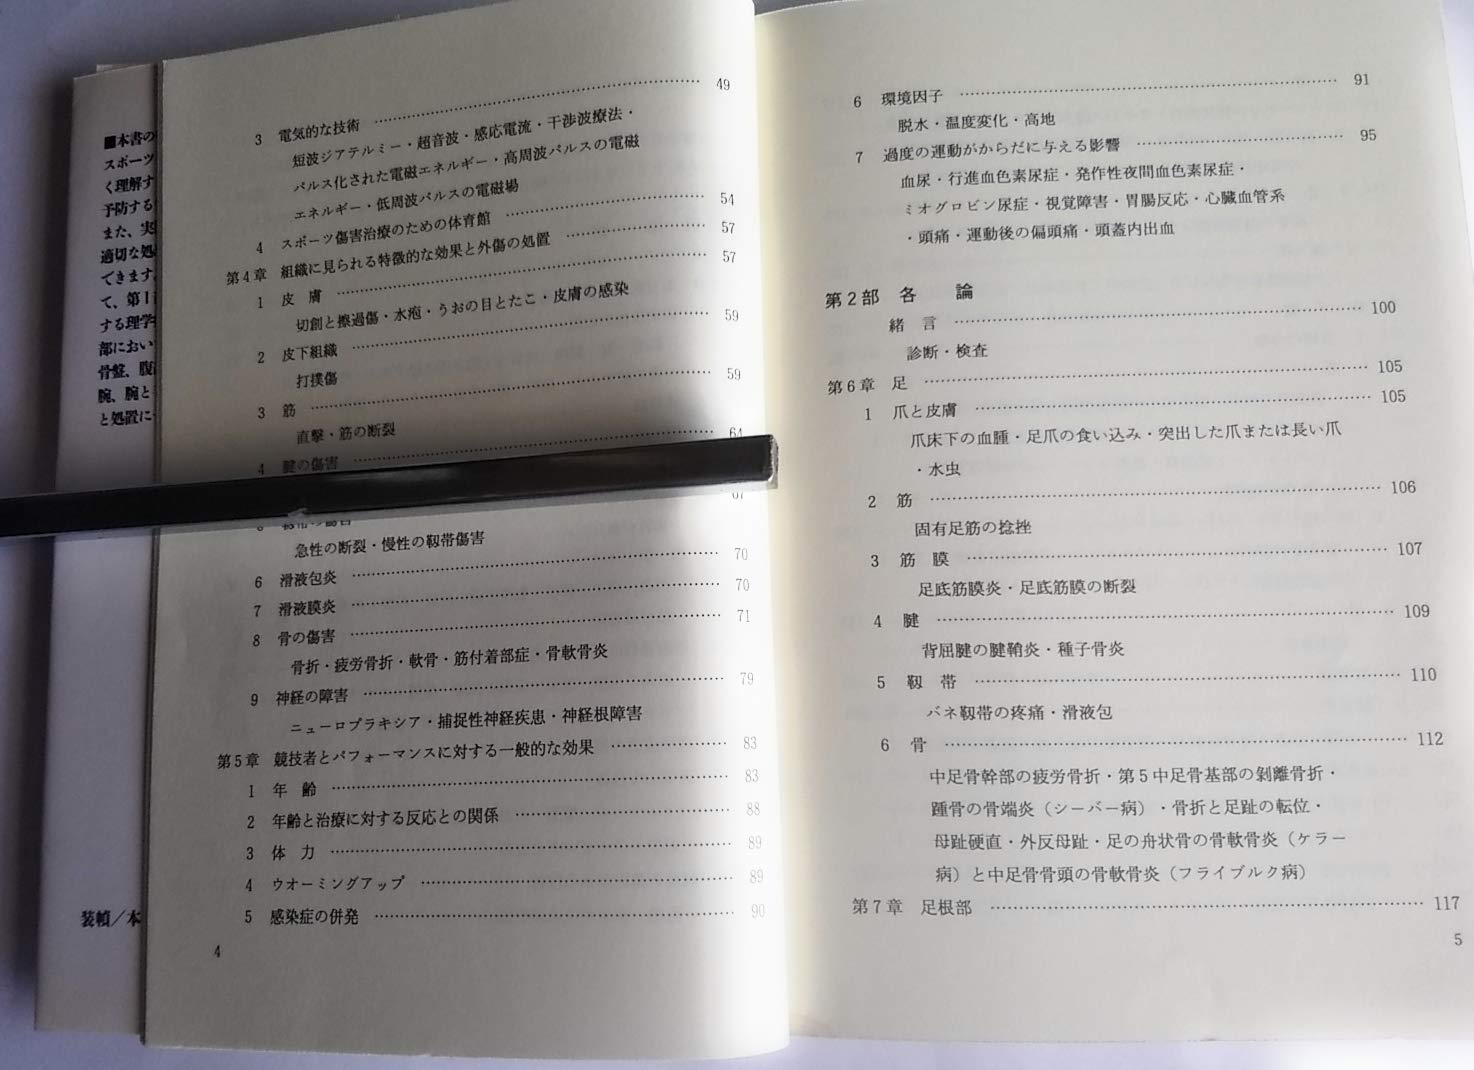 ■本書の
スポーツ
く理解す
予防する
また、実
適切な処
できます。
て、第1
する理学
部におい
骨盤、腹
腕、腕と
と処置に
装幀／本
3 電気的な技術 …… 49
短波ジアテルミー・超音波・感応電流・干渉波療法・
パルス化された電磁エネルギー・高周波パルスの電磁
エネルギー・低周波パルスの電磁場
4 スポーツ傷害治療のための体育館 …… 54
第4章 組織に見られる特徴的な効果と外傷の処置 …… 57
1 皮 膚 …… 57
切創と擦過傷・水疱・うおの目とたこ・皮膚の感染
2 皮下組織 …… 59
打撲傷
3 筋 …… 59
直撃・筋の断裂
4 腱の傷害 …… 64
67
急性の断裂・慢性の靱帯傷害
6 滑液包炎 …… 70
7 滑液膜炎 …… 70
8 骨の傷害 …… 71
骨折・疲労骨折・軟骨・筋付着部症・骨軟骨炎
9 神経の障害 …… 79
ニューロプラキシア・捕捉性神経疾患・神経根障害
第5章 競技者とパフォーマンスに対する一般的な効果 …… 83
1 年 齢 …… 83
2 年齢と治療に対する反応との関係 …… 88
3 体 力 …… 89
4 ウオーミングアップ …… 89
5 感染症の併発 …… 90
4
6 環境因子 …… 91
脱水・温度変化・高地
7 過度の運動がからだに与える影響 …… 95
血尿・行進血色素尿症・発作性夜間血色素尿症・
ミオグロビン尿症・視覚障害・胃腸反応・心臓血管系
・頭痛・運動後の偏頭痛・頭蓋内出血
第2部 各 論
緒 言 …… 100
診断・検査
第6章 足 …… 105
1 爪と皮膚 …… 105
爪床下の血腫・足爪の食い込み・突出した爪または長い爪
・水虫
2 筋 …… 106
固有足筋の捻挫
3 筋 膜 …… 107
足底筋膜炎・足底筋膜の断裂
4 腱 …… 109
背屈腱の腱鞘炎・種子骨炎
5 靱 帯 …… 110
バネ靱帯の疼痛・滑液包
6 骨 …… 112
中足骨幹部の疲労骨折・第5中足骨基部の剝離骨折・
踵骨の骨端炎（シーバー病）・骨折と足趾の転位・
母趾硬直・外反母趾・足の舟状骨の骨軟骨炎（ケラー
病）と中足骨骨頭の骨軟骨炎（フライブルク病）
第7章 足根部 …… 117
5